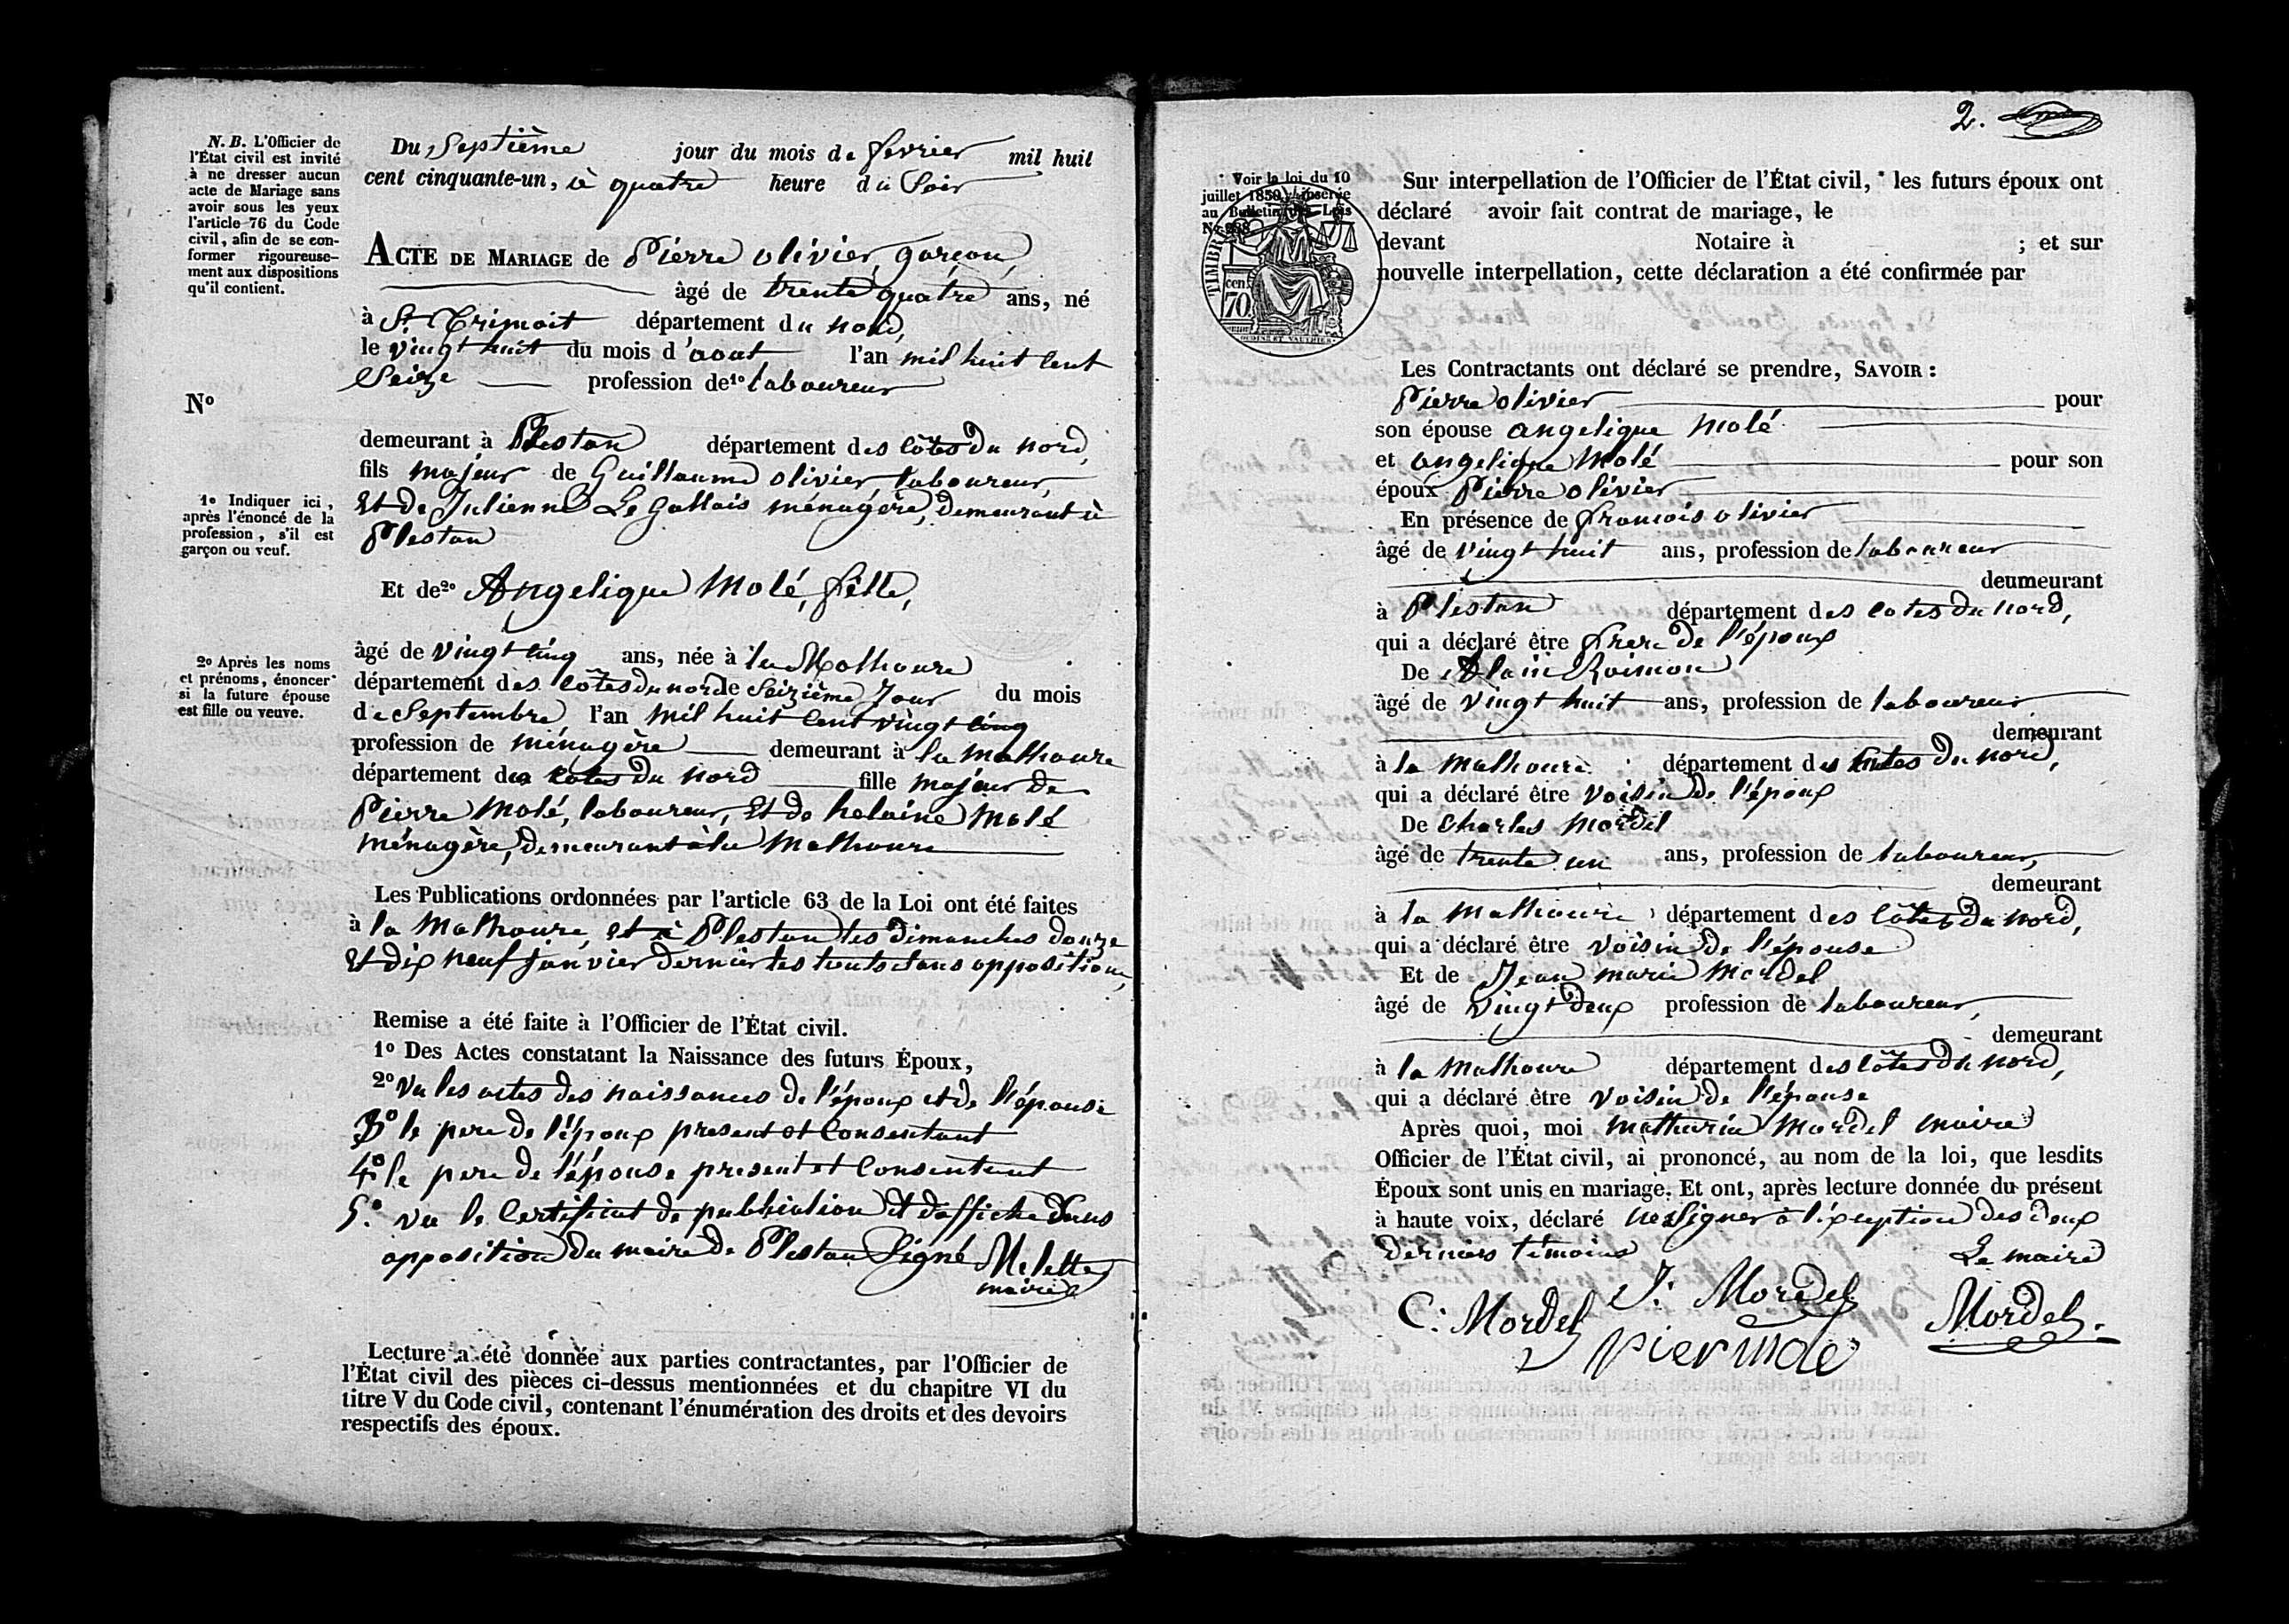 N. B. L'Officier de
l'État civil est invité
à ne dresser aucun
acte de Mariage sans
avoir sous les yeux
l'article 76 du Code
civil, afin de se con-
former rigoureuse-
ment aux dispositions
qu'il contient.
Du Septième jour du mois de fevrier mil huit
cent cinquante-un, à quatre heure du Soir
ACTE DE MARIAGE de Pierre olivier, garçon,
âgé de trente quatre ans, né
à St Trimoit département du nord,
le vingt huit du mois d'aout l'an mil huit cent
Seize profession de 1º laboureur
Nº
demeurant à Plestan département des côtes du nord,
fils majeur de Guillaume olivier, laboureur,
Et de Julienne Le Gallais ménagère, demeurant à
Plestan
1º Indiquer ici,
après l'énoncé de la
profession, s'il est
garçon ou veuf.
Et de 2º Angelique Molé, fille,
âgé de vingt cinq ans, née à la Malhoure
département des côtes du nord le Seizième Jour du mois
de Septembre l'an mil huit cent vingt cinq
profession de ménagère demeurant à la malhoure
département des cotes du nord fille majeur de
Pierre Molé, laboureur, Et de helaine Molé
ménagère, demeurant à la Malhoure
2º Après les noms
et prénoms, énoncer
si la future épouse
est fille ou veuve.
Les Publications ordonnées par l'article 63 de la Loi ont été faites
à la Malhoure, et à Plestan les dimanches douze
Et dix neuf janvier dernier les touts sans opposition,
Remise a été faite à l'Officier de l'État civil.
1º Des Actes constatant la Naissance des futurs Époux,
2º Vu les actes des naissances de l'époux et de l'épouse
3º le pere de l'époux present et Consentant
4º le pere de l'épouse present et Consentant
5º vu le Certificat de publiation et d'affiche sans
opposition du maire de Plestan Signé Melette
maire
Lecture a été donnée aux parties contractantes, par l'Officier de
l'État civil des pièces ci-dessus mentionnées et du chapitre VI du
titre V du Code civil, contenant l'énumération des droits et des devoirs
respectifs des époux.
2.
* Voir la loi du 10
juillet 1850, insérée
au Bulletin des Lois
TIMBR
cen
70
OUDINE ET VAUTHIER
Sur interpellation de l'Officier de l'État civil, * les futurs époux ont
déclaré avoir fait contrat de mariage, le
devant Notaire à ; et sur
nouvelle interpellation, cette déclaration a été confirmée par
Les Contractants ont déclaré se prendre, SAVOIR :
Pierre olivier pour
son épouse angelique Molé
et angelique Molé pour son
époux Pierre olivier
En présence de francois olivier
âgé de vingt huit ans, profession de laboureur
deumeurant
à Plestan département des cotes du nord,
qui a déclaré être frere de l'époux
De Alain Roimon
âgé de vingt huit ans, profession de laboureur
demeurant
à la Malhoure département des cotes du nord,
qui a déclaré être voisin de l'époux
De Charles Mordel
âgé de trente un ans, profession de laboureur,
demeurant
à la Malhoure département des côtes du nord,
qui a déclaré être voisin de l'épouse
Et de Jean marie Mordel
âgé de vingt deux profession de laboureur,
demeurant
à la Malhoure département des côtes du nord,
qui a déclaré être voisin de l'épouse
Après quoi, moi mathurin Mordel maire
Officier de l'État civil, ai prononcé, au nom de la loi, que lesdits
Époux sont unis en mariage. Et ont, après lecture donnée du présent
à haute voix, déclaré ne Signer à l'exeption des deux
derniers témoins Le maire
C: Mordel J: Mordel Mordel
pier mole